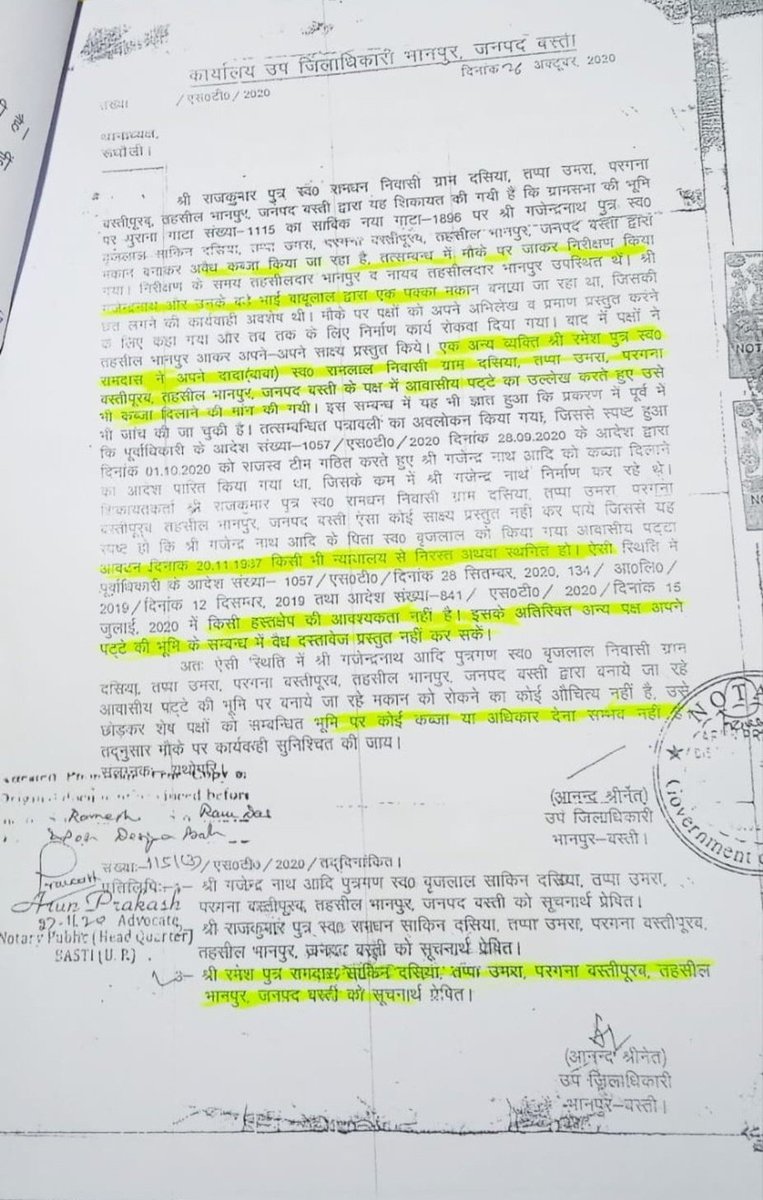 कार्यालय उप जिलाधिकारी भानपुर, जनपद बस्ती
संख्या /एस०टी०/2020 दिनांक 26 अक्टूबर, 2020
थानाध्यक्ष,
रूधौली।
श्री राजकुमार पुत्र स्व० रामधन निवासी ग्राम दसिया, तप्पा उमरा, परगना
बस्तीपूरब, तहसील भानपुर, जनपद बस्ती द्वारा यह शिकायत की गयी है कि ग्रामसभा की भूमि
पर पुराना गाटा संख्या-1115 का साविक नया गाटा-1896 पर श्री गजेन्द्रनाथ पुत्र स्व०
बृजलाल साकिन दसिया, तप्पा उमरा, परगना बस्तीपूरब, तहसील भानपुर, जनपद बस्ती द्वारा
मकान बनाकर अवैध कब्जा किया जा रहा है, तत्सम्बन्ध में मौके पर जाकर निरीक्षण किया
गया। निरीक्षण के समय तहसीलदार भानपुर व नायब तहसीलदार भानपुर उपस्थित थे। श्री
गजेन्द्रनाथ और उनके बड़े भाई बाबूलाल द्वारा एक पक्का मकान बनाया जा रहा था, जिसकी
छत लगने की कार्यवाही अवशेष थी। मौके पर पक्षों को अपने अभिलेख व प्रमाण प्रस्तुत करने
के लिए कहा गया और तब तक के लिए निर्माण कार्य रोकवा दिया गया। बाद में पक्षों ने
तहसील भानपुर आकर अपने-अपने साक्ष्य प्रस्तुत किये। एक अन्य व्यक्ति श्री रमेश पुत्र स्व०
रामदास ने अपने दादा(बाबा) स्व० रामलाल निवासी ग्राम दसिया, तप्पा उमरा, परगना
बस्तीपूरब, तहसील भानपुर, जनपद बस्ती के पक्ष में आवासीय पट्टे का उल्लेख करते हुए उसे
भी कब्जा दिलाने की मांग की गयी। इस सम्बन्ध में यह भी ज्ञात हुआ कि प्रकरण में पूर्व में
भी जांच की जा चुकी है। तत्सम्बन्धित पत्रावली का अवलोकन किया गया, जिससे स्पष्ट हुआ
कि पूर्वाधिकारी के आदेश संख्या-1057/एस०टी०/2020 दिनांक 28.09.2020 के आदेश द्वारा
दिनांक 01.10.2020 को राजस्व टीम गठित करते हुए श्री गजेन्द्र नाथ आदि को कब्जा दिलाने
का आदेश पारित किया गया था, जिसके कम में श्री गजेन्द्र नाथ निर्माण कर रहे थे।
शिकायतकर्ता श्री राजकुमार पुत्र स्व० रामधन निवासी ग्राम दसिया, तप्पा उमरा, परगना
बस्तीपूरब तहसील भानपुर, जनपद बस्ती ऐसा कोई साक्ष्य प्रस्तुत नही कर पाये जिससे यह
स्पष्ट हो कि श्री गजेन्द्र नाथ आदि के पिता स्व० बृजलाल को किया गया आवासीय पट्टा
आवंटन दिनांक 20.11.1987 किसी भी न्यायालय से निरस्त अथवा स्थगित हो। ऐसी स्थिति में
पूर्वाधिकारी के आदेश संख्या- 1057/एस०टी०/दिनांक 28 सितम्बर, 2020, 134/ आ०लि०/
2019/दिनांक 12 दिसम्बर, 2019 तथा आदेश संख्या-841/ एस०टी०/ 2020/दिनांक 15
जुलाई, 2020 में किसी हस्तक्षेप की आवश्यकता नहीं है। इसके अतिरिक्त अन्य पक्ष अपने
पट्टे की भूमि के सम्बन्ध में वैध दस्तावेज प्रस्तुत नहीं कर सकें।
अतः ऐसी स्थिति में श्री गजेन्द्रनाथ आदि पुत्रगण स्व० बृजलाल निवासी ग्राम
दसिया, तप्पा उमरा, परगना बस्तीपूरब, तहसील भानपुर, जनपद बस्ती द्वारा बनाये जा रहे
आवासीय पट्टे की भूमि पर बनाये जा रहे मकान को रोकने का कोई औचित्य नहीं है, उसे
छोड़कर शेष पक्षों को सम्बन्धित भूमि पर कोई कब्जा या अधिकार देना सम्भव नहीं है
तद्नुसार मौके पर कार्यवाही सुनिश्चित की जाय।
संलग्नक- यथोपरि।
before
Ramesh Ram Das
(आनन्द श्रीनेत)
उप जिलाधिकारी
भानपुर-बस्ती।
संख्या-115(3)/एस०टी०/2020/तद्दिनांकित।
प्रतिलिपि:-
श्री गजेन्द्र नाथ आदि पुत्रगण स्व० बृजलाल साकिन दसिया, तप्पा उमरा,
परगना बस्तीपूरब, तहसील भानपुर, जनपद बस्ती को सूचनार्थ प्रेषित।
श्री राजकुमार पुत्र स्व० रामधन साकिन दसिया, तप्पा उमरा, परगना बस्तीपूरब,
तहसील भानपुर, जनपद बस्ती को सूचनार्थ प्रेषित।
3- श्री रमेश पुत्र रामदास साकिन दसिया, तप्पा उमरा, परगना बस्तीपूरब, तहसील
भानपुर, जनपद बस्ती को सूचनार्थ प्रेषित।
Arun Prakash
27.11.20 Advocate
Notary Public (Head Quarter)
BASTI (U.P.)
(आनन्द श्रीनेत)
उप जिलाधिकारी
भानपुर-बस्ती।
NOT
NO
NOT
Government